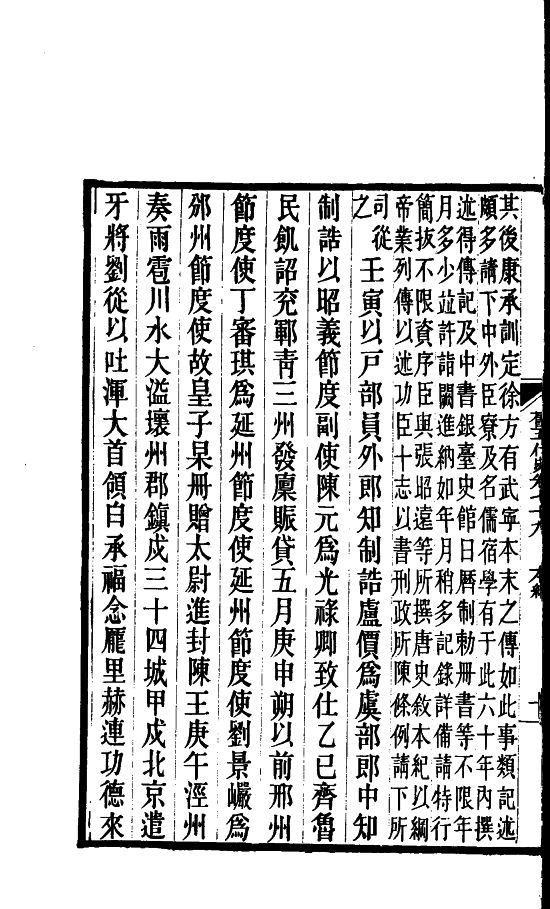 其後康承訓定徐方有武寧本末之傳如此事類記述
頗多請下中外臣寮及名儒宿學有于此六十年內撰
述得傳記及中書銀臺史館日曆制勅冊書等不限年
月多少並許詣闕進納如年月稍多記錄詳備請特行
簡拔不限資序臣與張昭遠等所撰唐史敘本紀以綱
帝業列傳以述功臣十志以書刑政所陳條例請下所
司從之
壬寅以戸部員外郎知制誥盧價爲虞部郎中知
制誥以昭義節度副使陳元爲光祿卿致仕乙巳齊魯
民飢詔兖鄆青三州發廩賑貸五月庚申朔以前邢州
節度使丁審琪爲延州節度使延州節度使劉景巖爲
邠州節度使故皇子杲冊贈太尉進封陳王庚午涇州
奏雨雹川水大溢壞州郡鎮戍三十四城甲戌北京遣
牙將劉從以吐渾大首領白承福念龐里赫連功德來